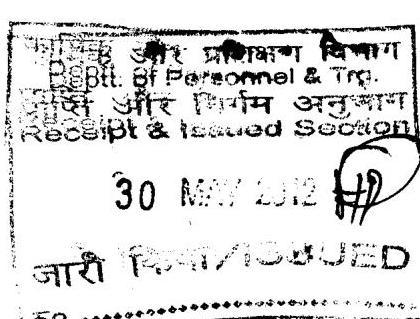 कार्मिक और प्रशिक्षण विभाग
Deptt. of Personnel & Trg.
प्राप्ति और निर्गम अनुभाग
Receipt & Issued Section
30 MAY 2012
जारी किया/ISSUED